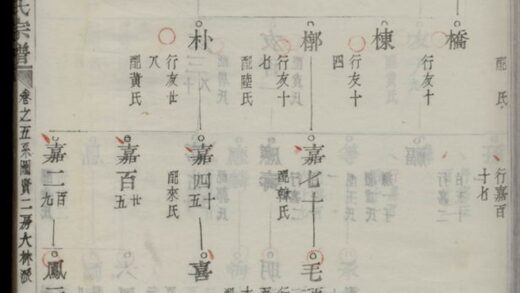 配 氏
橋
行友十
棟
行友十
四
槨
行友十
七
配陸氏
朴
行友廿
八
配黃氏
行嘉百
十七
嘉七十
配韓氏
嘉四十五
配來氏
嘉百廿五
嘉二百九
毛
喜
鳳
氏宗譜
卷之五系圖貴二房大林派